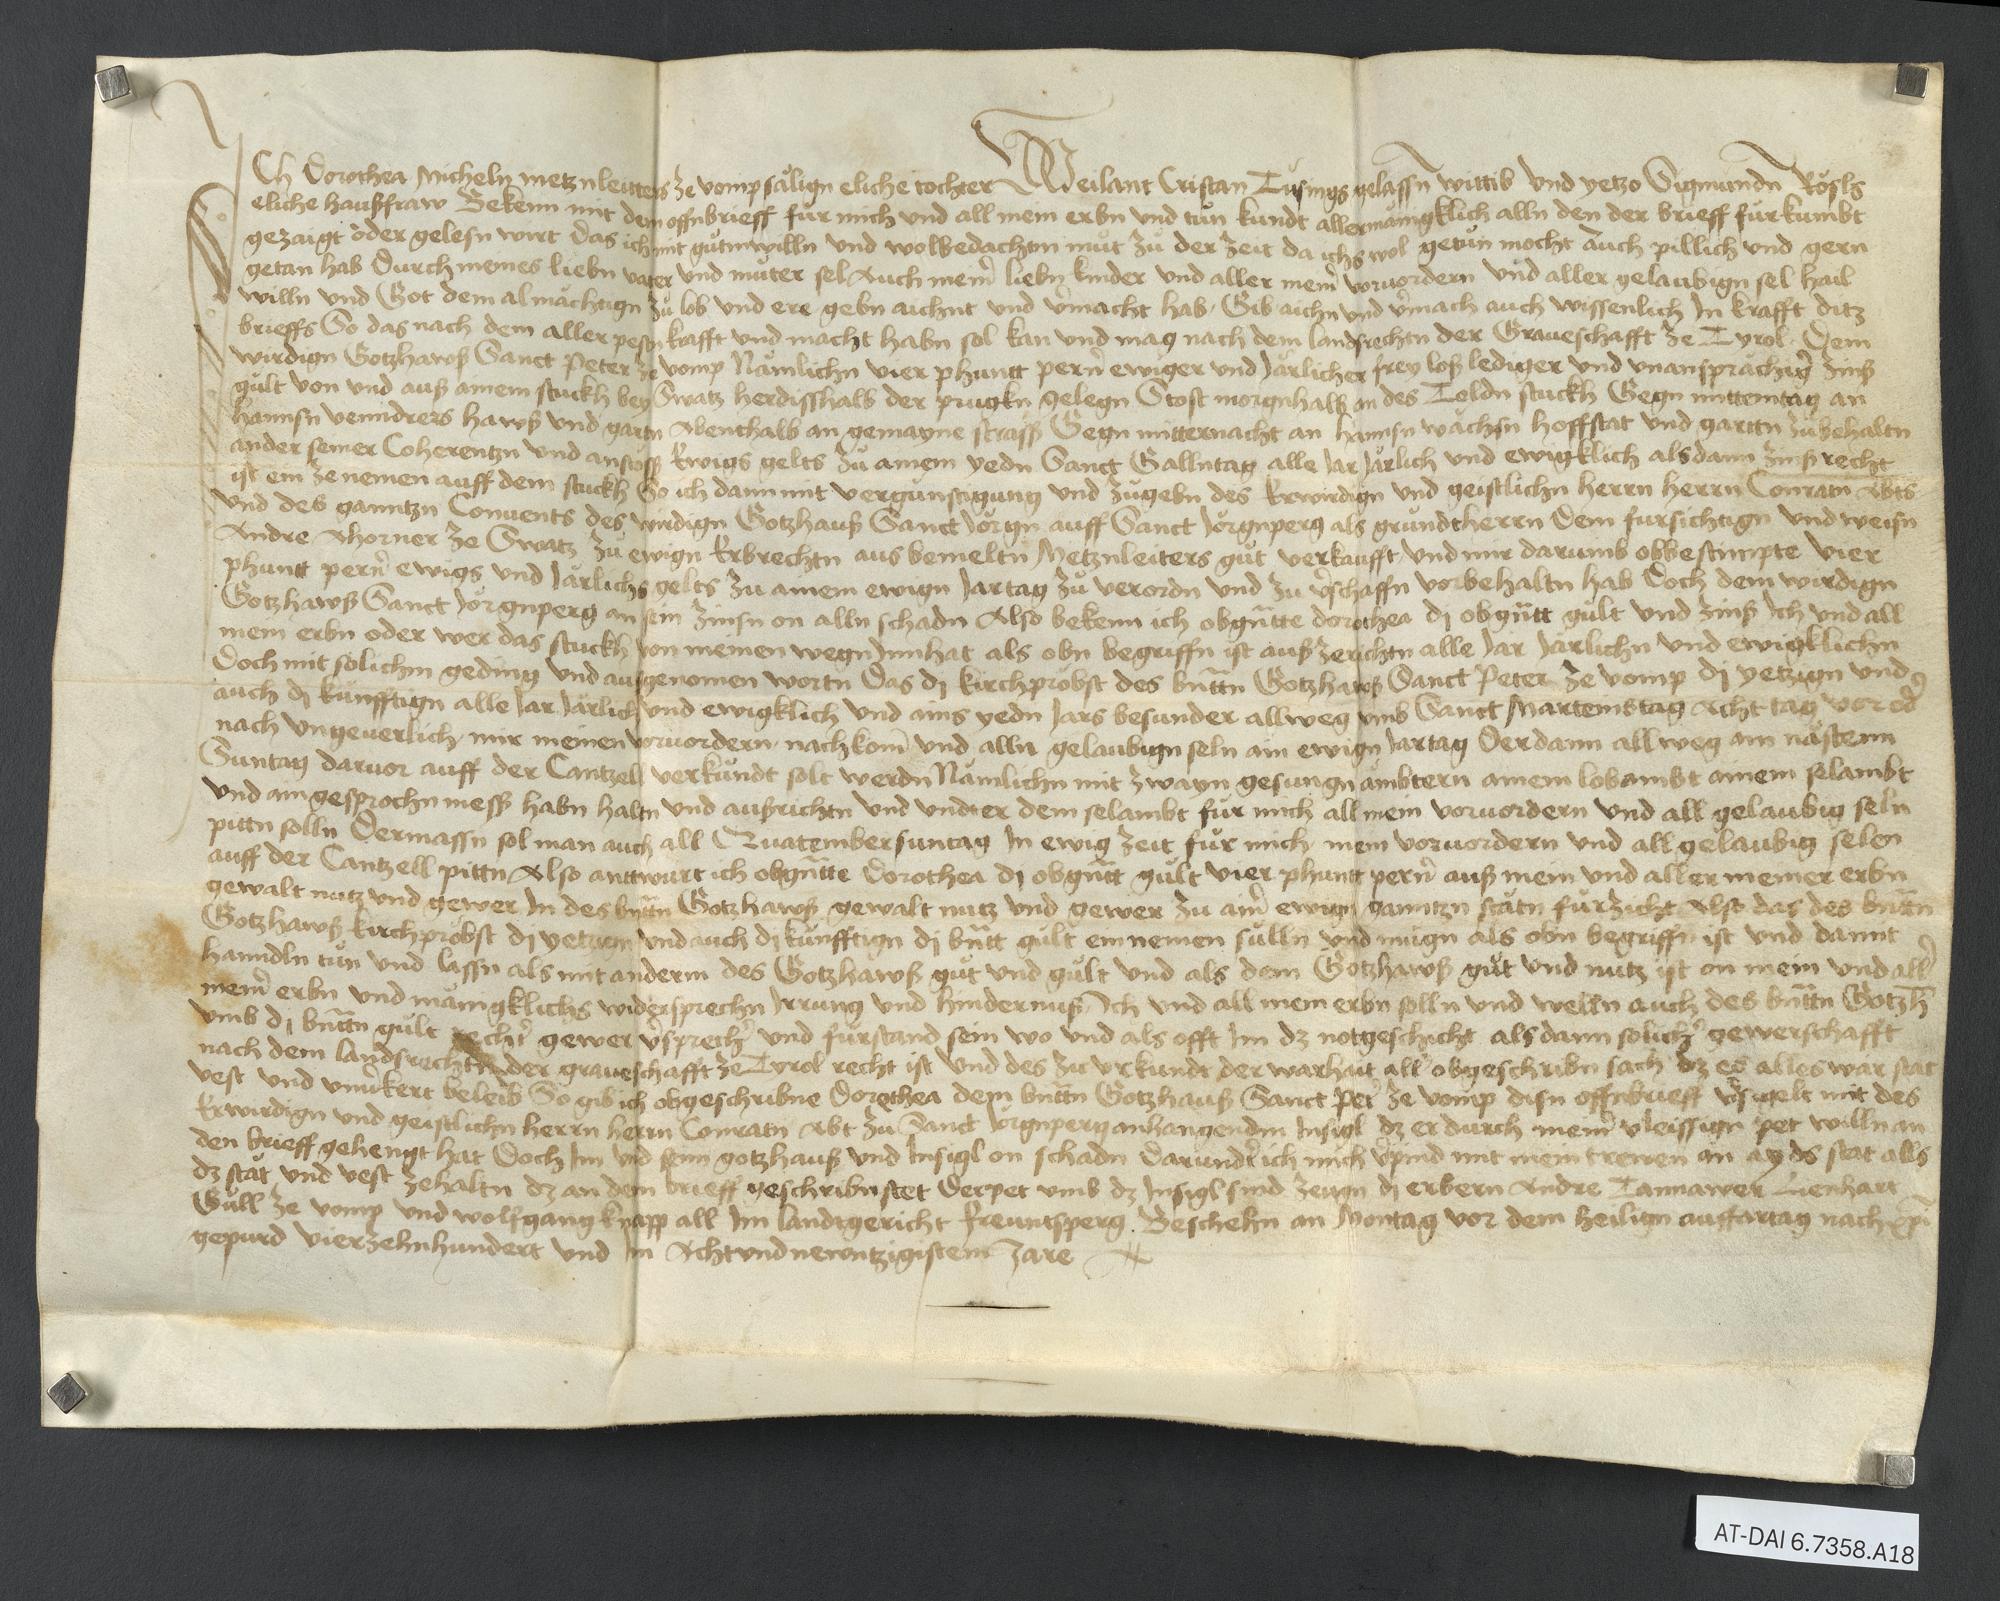 Ich Dorothea Micheln metznleitters ze vomp såligñ eliche tochter Weilant Cristan Tusings gelassñ wittib vnd yetzo Sigmundñ Rösls
eliche haußfraw Bekenn mit dem offnbrieff für mich vnd all mein erbñ vnd tůn kundt allermånigklich allñ den der brieff fürkumbt
gezaigt oder gelesñ wirt Das ich mit gůtmwillñ vnd wolbedachtm můt zů der zeit da ichs wol getůn mocht auch pillich vnd gern
getan hab Durch meines liebñ vater vnd můter sel Auch meiñ liebñ kinder vnd aller meiñ voruordern vnd aller gelaubigñ sel hail
willñ vnd Got dem almåchtigñ zů lob vnd ere gebñ aichnt vnd v͛macht hab · Gib aichñ vnd v͛mach auch wissenlich In krafft ditz
brieffs So das nach dem aller pestñ krafft vnd macht habñ sol kan vnd mag nach dem landsrechtñ der Graueschafft ze Tyrol · Dem
wirdigñ Gotzhawß Sanct Peter ze vomp Nåmlichñ vier phuntt perñ ewiger vnd Jårlicher frey loß lediger vnd vnansprächig͛ zinß
gült von vnd auß ainem stuckh bey Swatz herdisshalb der prugkñ gelegñ Stost morgnhalb an des Toldñ stuckh Gegñ mittemtag an
hannsñ venndrers hawß vnd gartñ Abenthalb an gemayne straß Gegñ mitternacht an hannsñ wåchsñ hoffstat vnd garttñ zůbehaltñ
ander seiner Coherentzñ vnd anstöß Ewigs gelts zů ainem yedñ Sanct Gallntag alle Jar Jårlich vnd ewigklich alsdann zinßrecht
ist ein ze nemen auff dem stuckh So ich dann mit vergünstigung vnd zůgebñ des Erwirdigñ vnd geistlichñ herrn herrn Conratñ Abts
vnd des ganntzñ Conuents des wirdigñ Gotzhauß Sanct Jörgñ auff Sanct Jörgnperg als grundtherrn Dem fursichtigñ vnd weisñ
Andre Ahorner ze Swatz zů ewigñ Erbrechtñ aus bemeltñ Metznleiters gůt verkaufft vnd mir darumb obbestimpte vier
phuntt perñ ewigs vnd Jårlichs gelts zu ainem ewigñ Jartag zů verordñ vnd zu v͛schaffñ vorbehaltñ hab Doch dem wirdigñ
Gotzhawß Sanct Jörgnperg an sein zinsñ on allñ schadñ Also bekenn ich obgn̄tte dorothea dj obgn̄tt gült vnd zinß Ich vnd all
mein erbñ oder wer das stuckh von meinen wegñ Innhat als obñ begriffñ ist außzerichtñ alle Jar Järlichñ vnd ewigklichñ
Doch mit solichm geding vnd außgenomen wortñ Das dj kirchpröbst des bn̄ttñ Gotzhawß Sanct Peter ze vomp dj yetzigñ vnd
auch dj künfftigñ alle Jar Järlich vnd ewigklich vnd ains yedñ Jars besunder allweg vmb Sanct Marteinstag Acht tag vor od͛
nach vngeuerlich · mir meinen voruordern · nachkom̄ vnd allñ gelaubign selñ ain ewigñ Jartag Der dann allweg am nåstenn
Suntag daruor auff der Cantzell verkündt solt werdñ Nåmlichñ mit zwayn gesungñ åmbtern ainem lobambt ainem selambt
vnd ain gesprochñ meß habñ haltñ vnd außrichtñ vnd vndter dem selambt für mich all mein voruordern vnd all gelaubig selñ
pittñ sollñ Dermassñ sol man auch all Quatembersuntag In ewig zeit für mich mein voruordern vnd all gelaubig selen
auff der Cantzell pittñ Also anttwurt ich obgn̄tte Dorothea dj obgn̄tt gült vier phuntt perñ auß mein vnd aller meiner erbñ
gewalt nutz vnd gewer In des bn̄ttñ Gotzhawß gewalt nutz vnd gewer zu aim̄ ewign ganntzñ ståtñ fürzicht Also das des bn̄ttñ
Gotzhawß kirchpröbst dj yetzign vnd auch dj künfftigñ dj bn̄tt gült ein nemen süllñ vnd mügñ als obñ begriffñ ist vnd damit
hanndlñ tůn vnd lassñ als mit anderm des Gotzhawß gůt vnd gült vnd als dem Gotzhawß gůt vnd nutz ist on mein vnd all͛
meiñ erbñ vnd månigklichs widersprechñ Irrung vnd hindernuß Ich vnd all mein erbñ sollñ vnd wellñ auch des bn̄ttñ Gotzh̄
vmb dj bn̄ttñ gült recht͛ gewer v͛sprech͛ vnd fürstand sein wo vnd als offt Im dz notgeschicht als dann solich͛ gewerschafft
nach dem landsrechtñ der graueschafft ze Tyrol recht ist Vnd des zu vrkundt der warhait all͛ obgeschribñ sach dz es alles war stat
vest vnd vnu͛kert beleib So gib ich obgeschribne Dorothea dem bn̄ttñ Gotzhauß Sanct Pet͛ ze vomp disñ offnbrieff v͛sigelt mit des
Erwirdigñ vnd geistlichñ herrn herrn Conratñ Abt zu Sanct Jörgnperg anhangendm Insigl dz er durch meiñ vleissign pet willñ an
den brieff gehengt hat Doch Im vnd seim gotzhauß vnd Insigl on schadñ Darundt͛ ich mich v͛pind mit mein trewen an ayds stat alls
dz ståt vnd vest zehaltñ dz an dem brieff geschribñ stet Der pet vmb dz Insigl sind zeugñ dj erbern Andre Tannawer Lienhart
Güll ze vomp vnd wolfgang knapp all Im landtgericht freuntsperg · Beschehñ an Montag vor dem heiligñ auffartag nach xp̄i
gepurd vierzehnhundert vnd In Achtvndnewntzigistem Jare

AT-DAI 6.7358.A18